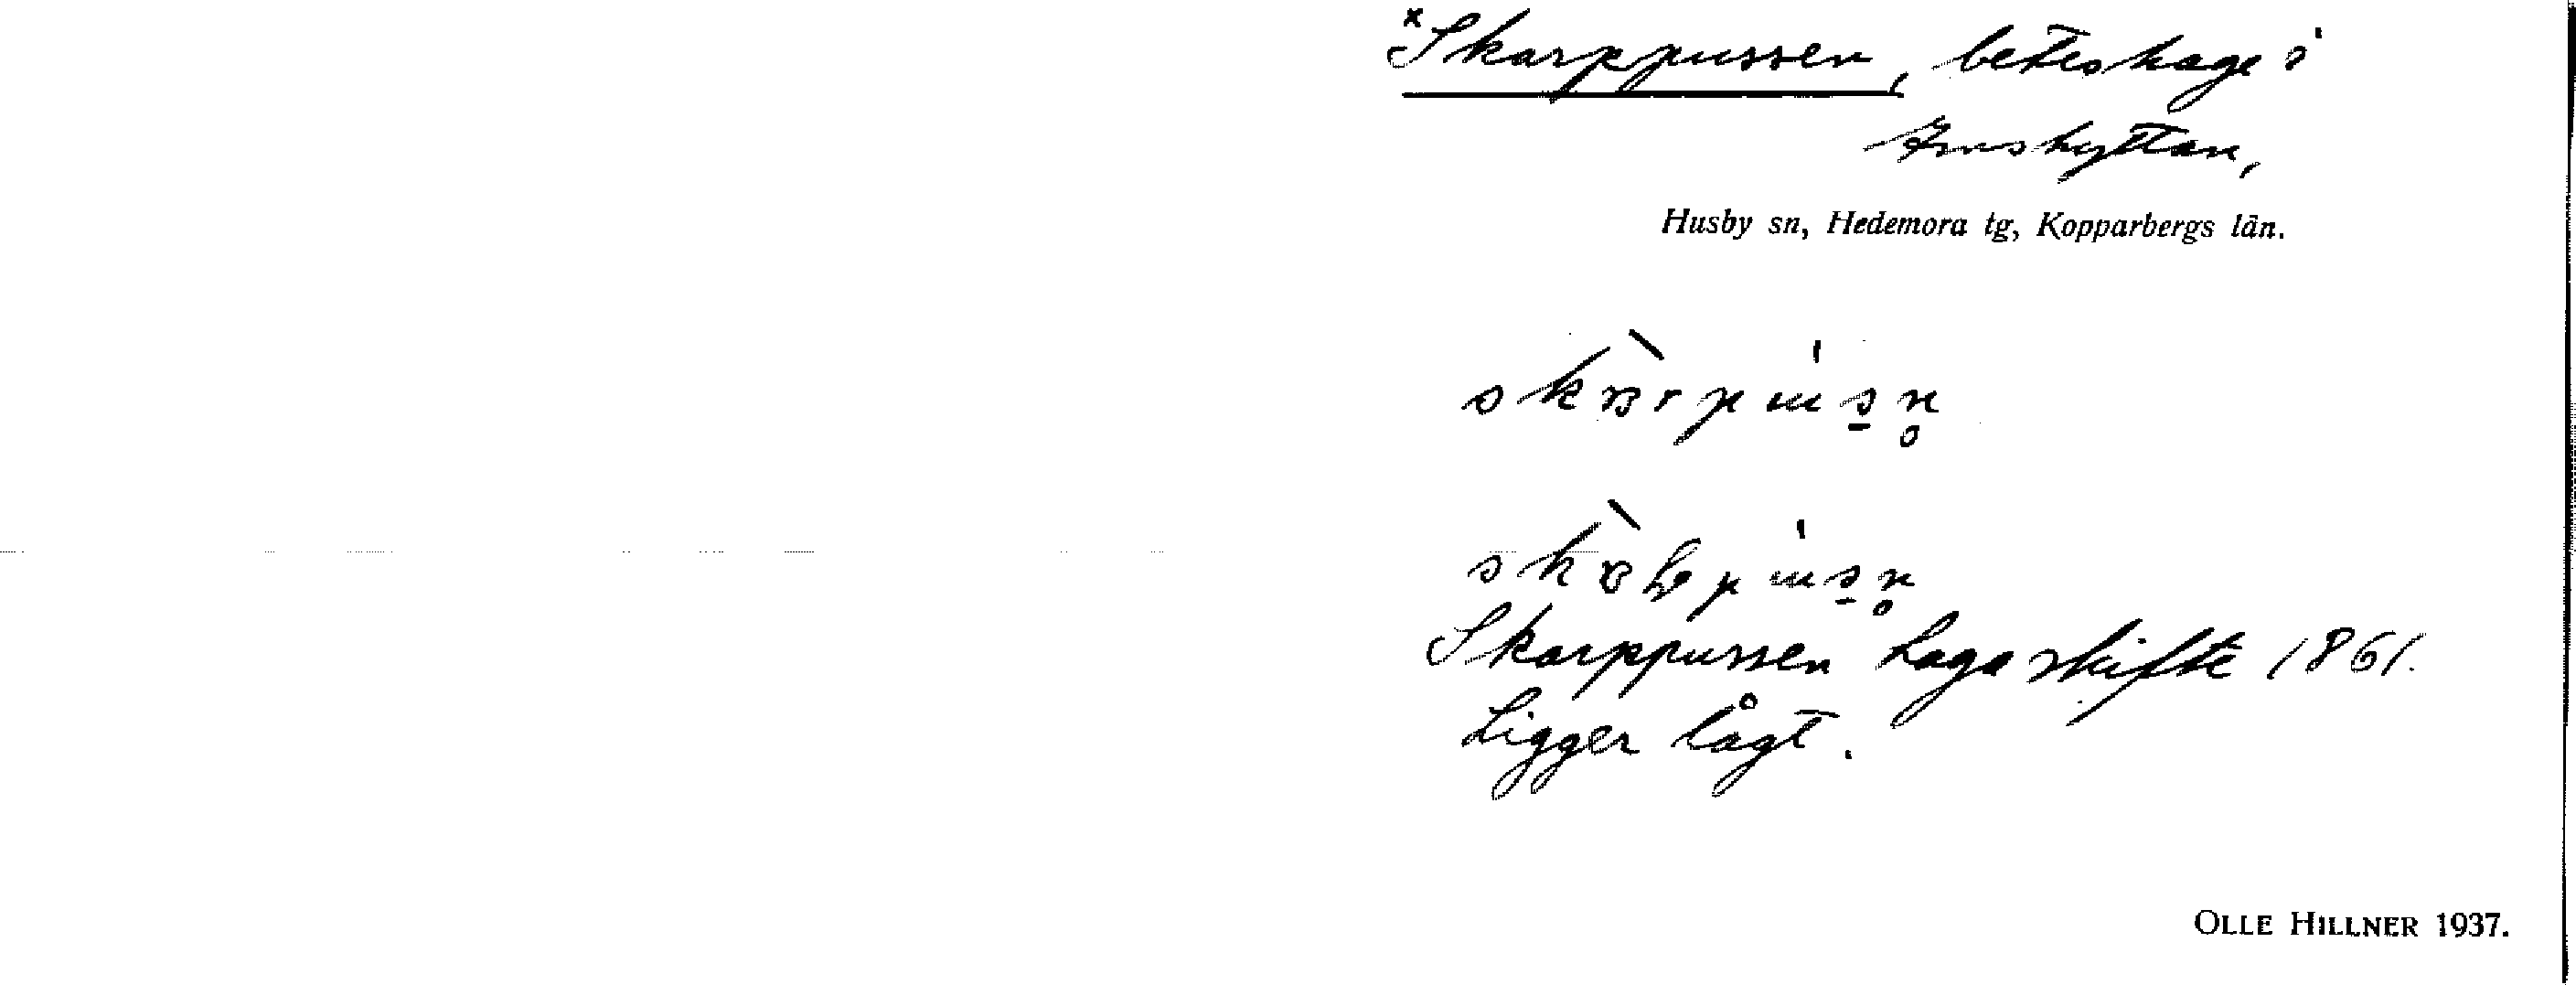 *Skarppussen, beteshage i
Smshyttan,
Husby sn, Hedemora tg, Kopparbergs län.
Skarppussen Laga skifte 1861.
Ligger lågt.
OLLE HILLNER 1937.